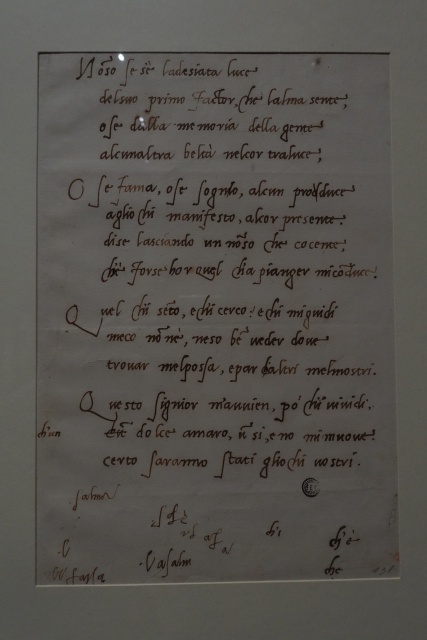 Nōso se sè ladesiata luce
delsuo primo factor, che lalma sente,
ose dalla memoria della gente
alcunaltra beltà nelcor traluce,
O se fama, ose sognio, alcun prodduce
aglio chi manifesto, alcor presente.
dise lasciando un nōso che cocente.
chè forse hor quel cha pianger micōduce.
Quel chi sēto, echi cerco: echi miguidi
meco nōnè, neso bē ueder doue
trouar melpossa, epar chaltri melmostri.
Questo signior mauuien, po chi uiuidi.
chun
dolce amaro, ū si, eno mimuoue
certo saranno stati gliochi uostri.
salma
chi
ch'è
che